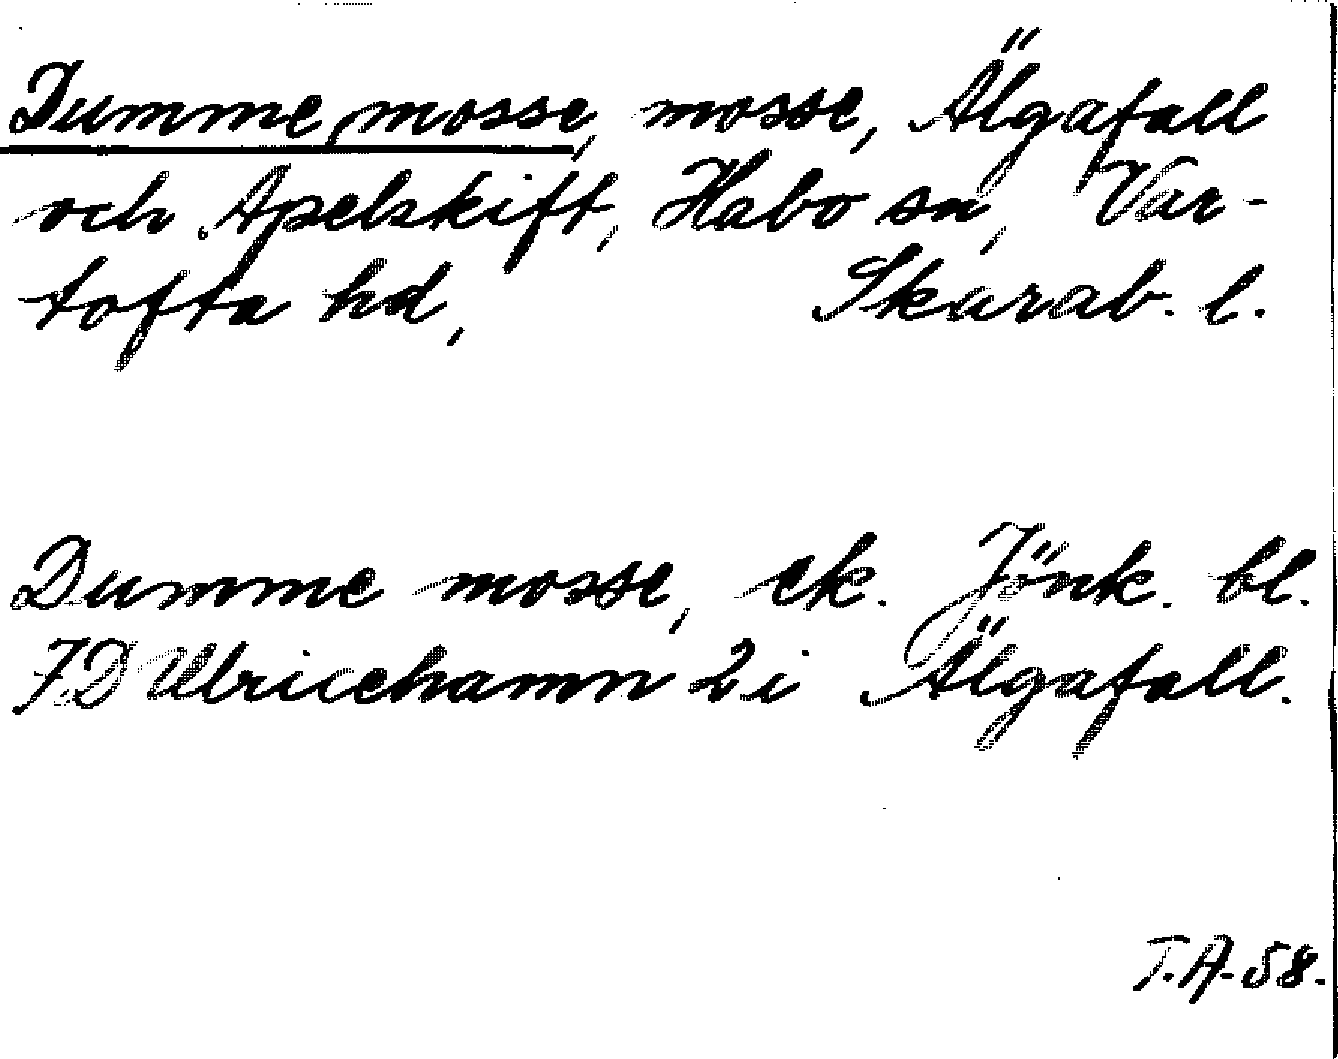 Dumme mosse, mosse, Älgafall
och Apelskift, Habo sn, Var-
tofta hd, Skarab. l.
Dumme mosse, ek. Jönk. bl.
7D Ulricehamn 2i Älgafall.
T.A-58.